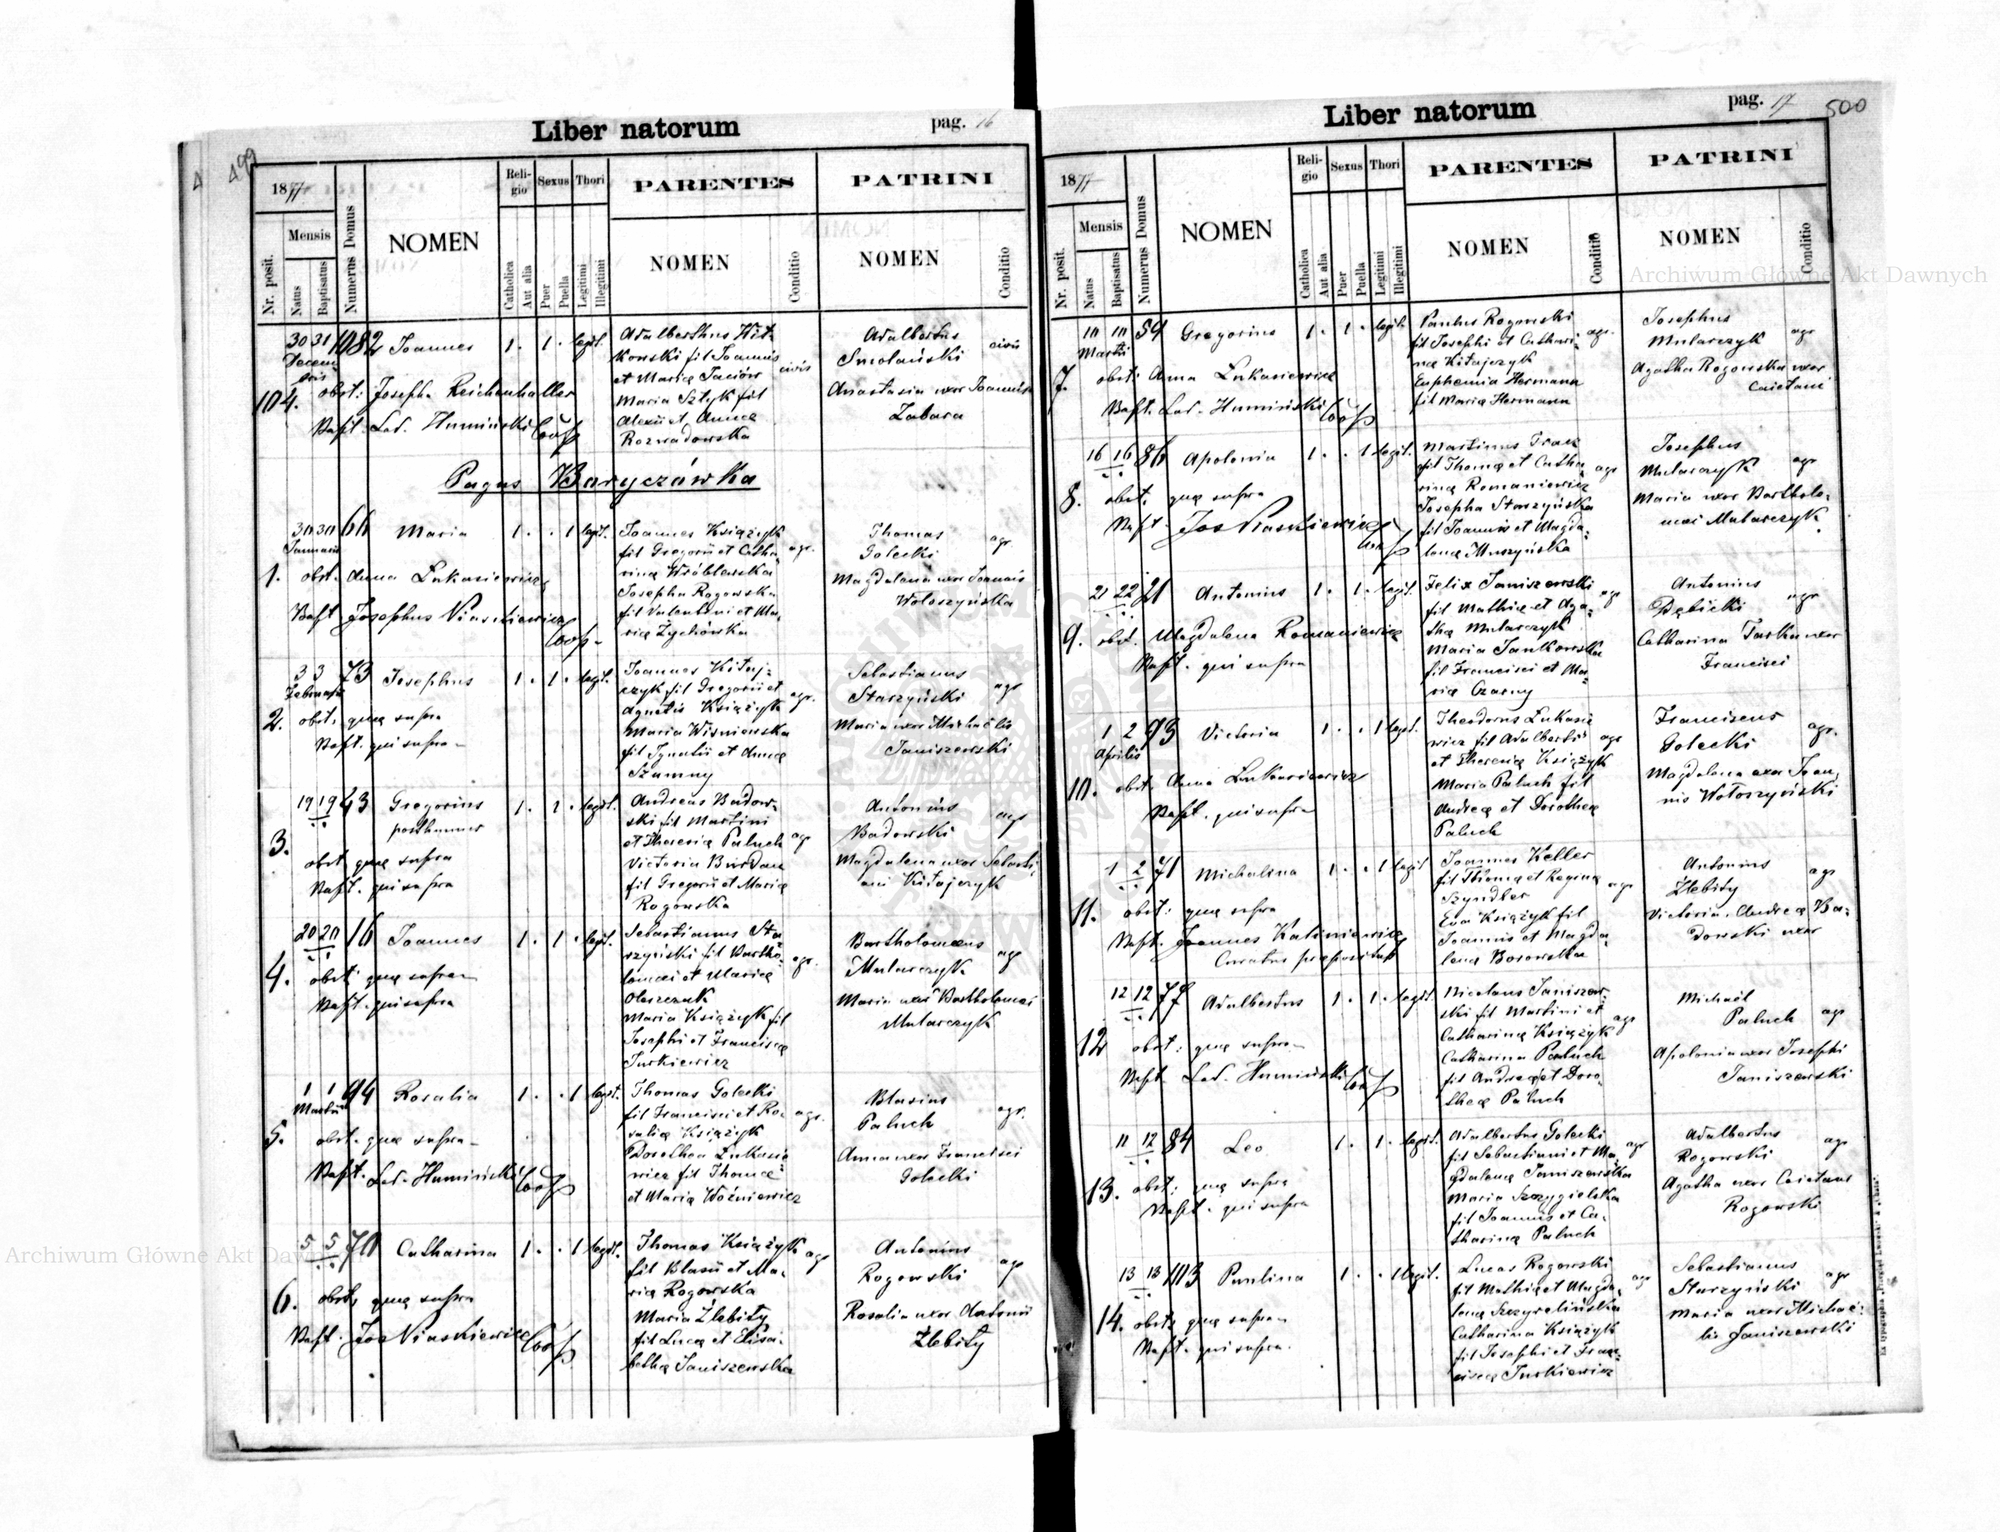 499
Liber natorum
pag. 16
1877
Nr. posit.
Mensis
Natus
Baptisatus
Numerus Domus
NOMEN
Religio
Catholica
Aut alia
Sexus
Puer
Puella
Thori
Legitimi
Illegitimi
PARENTES
NOMEN
Conditio
PATRINI
NOMEN
Conditio
104.
30 31 1082 Joannes 1. 1. legit.
Decembris
obst: Josepha Reichenhaller
Bapt. Lad. Humiński Coop
Adalbertus Wit-
kowski fil Joannis
et Maria
Maria Sztyk fil
Alexii et Anna
Rozwadowska
civis
Adalbertus
Smolański
civis
Anastasia uxor Joannis
Zabara
Pagus Baryczówka
1.
30 30 66 Maria 1. . 1 legit.
Januarii
obst. Anna Łukasiewicz
Bapt Josephus Piaskiewicz
Coop.
Joannes Książyk
fil Gregorii et Catha
rina Wróblewska
Josepha Rogowska
fil Valentini et Ma-
ria Zychówska
agr.
Thomas
Gołecki
agr.
Magdalena uxor Joannis
Wołoszyńska
2.
3 3 73 Josephus 1. 1. legit.
Februarii
obst. quae supra
Bapt. qui supra
Joannes Kitaj-
czyk fil Gregorii et
Agnetis Książyk
Maria Wiśniewska
fil Ignatii et Anna
Szumny
agr.
Sebastianus
Starzyński
agr
Maria uxor Michaëlis
Janiszewski
3.
19 19 43 Gregorius 1. 1. legit.
posthumus
obst. quae supra
Bapt. qui supra
Andreas Badow-
ski fil Martini
et Theresia Paluch
Victoria Burdan
fil Gregorii et Maria
Rogowska
agr
Antonius
Badowski
agr
Magdalena uxor Sebasti
ani Kitajczyk
4.
20 20 16 Joannes 1. 1. legit.
obst. quae supra
Bapt. qui supra
Sebastianus Sta
rzyński fil Bartho-
lomaei et Maria
Oleszczuk
Maria Książyk fil
Josephi et Francisca
Jurkiewicz
agr.
Bartholomaeus
Mularczyk
agr
Maria uxor Bartholomaei
Mularczyk
5.
1 1 94 Rosalia 1. . 1 legit.
Martii
obst. quae supra
Bapt. Lad. Humiński Coop
Thomas Gołecki
fil Francisci et Ro-
salia Książyk
Dorothea Łukasie
wicz fil Thomae
et Maria Woźniewicz
agr.
Blasius
Paluch
agr.
Anna uxor Francisci
Gołecki
6.
5 5 70 Catharina 1. . 1 legit.
obst. quae supra
Bapt. Jos Piaskiewicz Coop
Thomas Książyk
fil Blasii et Ma-
ria Rogowska
Maria Żlebity
fil Luca et Elisa-
betha Janiszewska
agr
Antonius
Rogowski
agr
Rosalia uxor Antonii
Żlebity
Liber natorum
pag. 17
500
1877
Nr. posit.
Mensis
Natus
Baptisatus
Numerus Domus
NOMEN
Religio
Catholica
Aut alia
Sexus
Puer
Puella
Thori
Legitimi
Illegitimi
PARENTES
NOMEN
Conditio
PATRINI
NOMEN
Conditio
7.
10 10 59 Gregorius 1. 1. legit.
Martii
obst: Anna Łukasiewicz
Bapt. Lad. Humiński Coop
Paulus Rogowski
fil Josephi et Cathari-
na Kitajczyk
Euphemia Hermann
fil Maria Hermann
agr.
Josephus
Mularczyk
agr
Agatha Rogowska uxor
Caietani
8.
16 16 86 Apolonia 1. . 1 legit.
obst. quae supra
Bapt. Jos Piaskiewicz
Coop
Martinus
fil Thoma et Catha
rina Romaniewicz
Josepha Starzyńska
fil Joannis et Magda-
lena Muszyńska
agr
Josephus
Mularczyk
agr
Maria uxor Bartholo-
maei Mularczyk
9.
21 22 21 Antonius 1. 1. legit.
obst. Magdalena Romaniewicz
Bapt. qui supra
Felix Janiszewski
fil Mathia et Aga-
tha Mularczyk
Maria Jankowska
fil Francisci et Ma-
ria Czarny
agr
Antonius
Dębicki
agr
Catharina uxor
Francisci
10.
1 2 93 Victoria 1. . 1 legit.
Aprilis
obst. Anna Łukasiewicz
Bapt. qui supra
Theodorus Łukasie
wicz fil Adalberti
et Theresia Książyk
Maria Paluch fil
Andrea et Dorothea
Paluch
agr
Franciscus
Gołecki
agr.
Magdalena uxor Joan-
nis Wołoszyński
11.
1 2 71 Michalina 1. . 1 legit
obst: quae supra
Bapt. Joannes Kaliniewicz
Curatus praepositus
Joannes Keller
fil Thoma et Regina
Szyndler
Eva Książyk fil
Joannis et Magda-
lena Borowska
agr
Antonius
Żlebity
agr
Victoria Andrea Ba-
dowski uxor
12
12 12 77 Adalbertus 1. 1. legit.
obst: quae supra
Bapt. Lad. Humiński Coop
Nicolaus Janiszew-
ski fil Martini et
Catharina Książyk
Catharina Paluch
fil Andrea et Doro-
thea Paluch
agr
Michaël
Paluch
agr
Apolonia uxor Josephi
Janiszewski
13.
11 12 84 Leo 1. 1. legit.
obst: quae supra
Bapt. qui supra
Adalbertus Gołecki
fil Sebastiani et Ma-
gdalena Janiszewska
Maria Szczygielska
fil Joannis et Ca-
tharina Paluch
agr
Adalbertus
Rogowski
agr
Agatha uxor Caietani
Rogowski
14.
13 13 103 Paulina 1. . 1 legit.
obst. quae supra
Bapt. qui supra
Lucas Rogowski
fil Mathia et Magda-
lena
Catharina Książyk
fil Josephi et Fran-
cisca Jurkiewicz
agr
Sebastianus
Starzyński
agr
Maria uxor Michaë-
lis Janiszewski
Archiwum Główne Akt Dawnych
Archiwum Główne Akt Dawnych